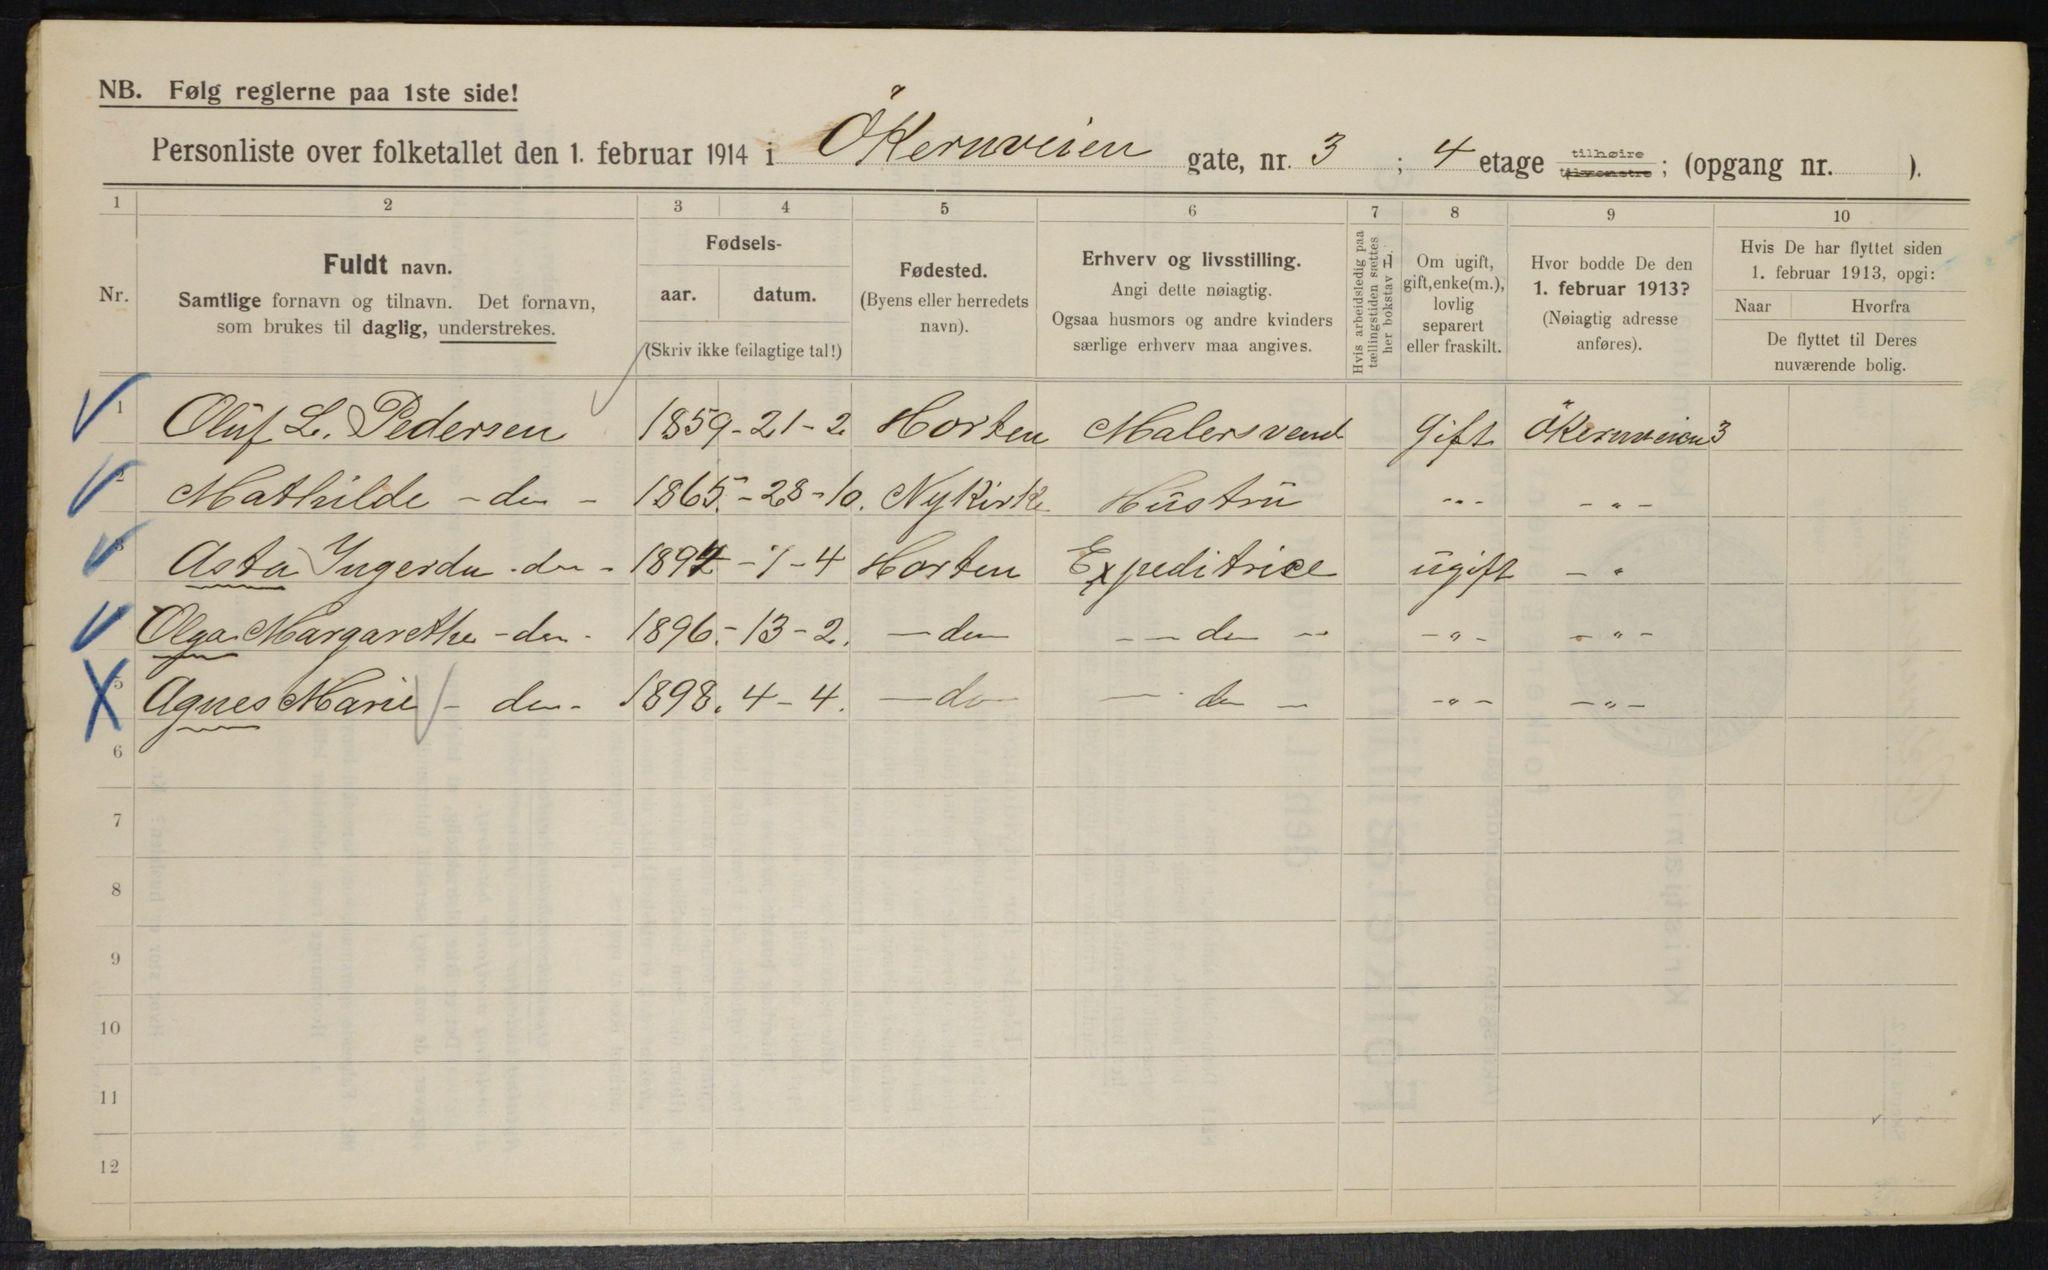 NB. Følg reglerne paa 1ste side!
Personliste over folketallet den 1. februar 1914 i Ökernveien gate, nr. 3 ; 4 etage tilhøire ; (opgang nr. ).
1 2 3 4 5 6 7 8 9 10
Nr.
Fuldt navn.
Samtlige fornavn og tilnavn. Det fornavn,
som brukes til daglig, understrekes.
Fødsels-
aar. datum.
(Skriv ikke feilagtige tal!)
Fødested.
(Byens eller herredets
navn).
Erhverv og livsstilling.
Angi dette nøiagtig.
Ogsaa husmors og andre kvinders
særlige erhverv maa angives.
Hvis arbeidsledig paa
tællingstiden sættes
her bokstav L
Om ugift,
gift, enke(m.),
lovlig
separert
eller fraskilt.
Hvor bodde De den
1. februar 1913?
(Nøiagtig adresse
anføres).
Hvis De har flyttet siden
1. februar 1913, opgi:
Naar Hvorfra
De flyttet til Deres
nuværende bolig.
1 Oluf L. Pedersen 1859 - 21 - 2 Horten Malersvend Gift Ökernveien 3
2 Mathilde - do - 1865. - 28 - 10. Nykirke Hustru - " - - " -
3 Asta Ingerda - do - 1894 - 7 - 4 Horten Expeditrice ugift - "
Olga Margarethe - do - 1896. - 13 - 2. - do - - do - - " - - " -
5 Agnes Marie - do - 1898. 4 - 4. - do - - do - - " - - " -
6
7
8
9
10
11
12